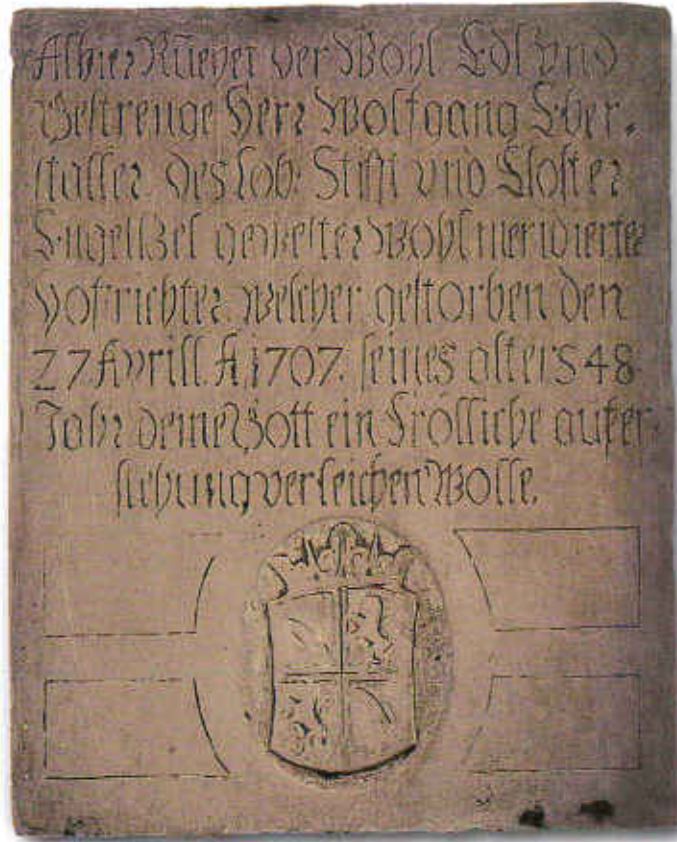 Alhier Rüehet der Wohl Edl vnd
Gestrenge Herr Wolfgang Eber-
staller des lob: Stifft vnd Closter
Engellszel gewester Wohl meridierter
Hofrichter welcher gestorben den
27 Aprill A 1707. seines alters 48
Jahr deme Gott ein Frölliche aufer-
stehung verleichen Wolle.